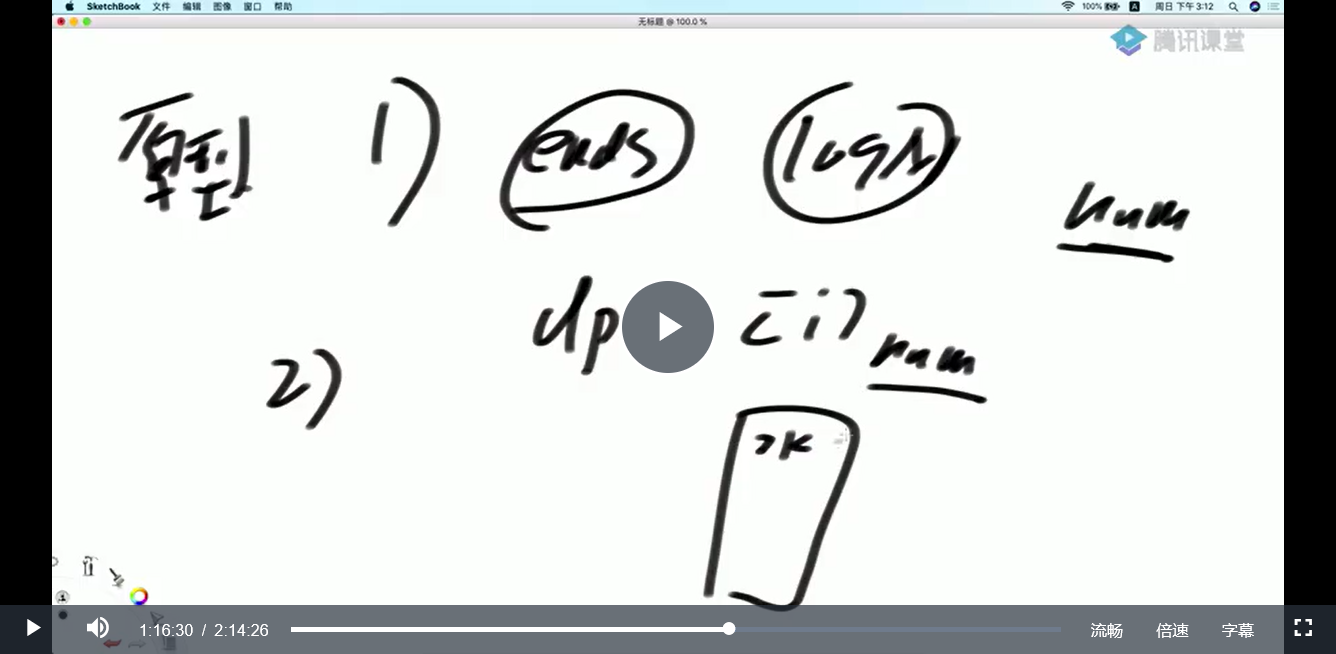 SketchBook 文件 编辑 图像 窗口 帮助 100% 周日 下午 3:12
无标题 @ 100.0 %
腾讯课堂
原型 1) ends logN
num
dp [i] num
2)
>k
1:16:30 / 2:14:26 流畅 倍速 字幕